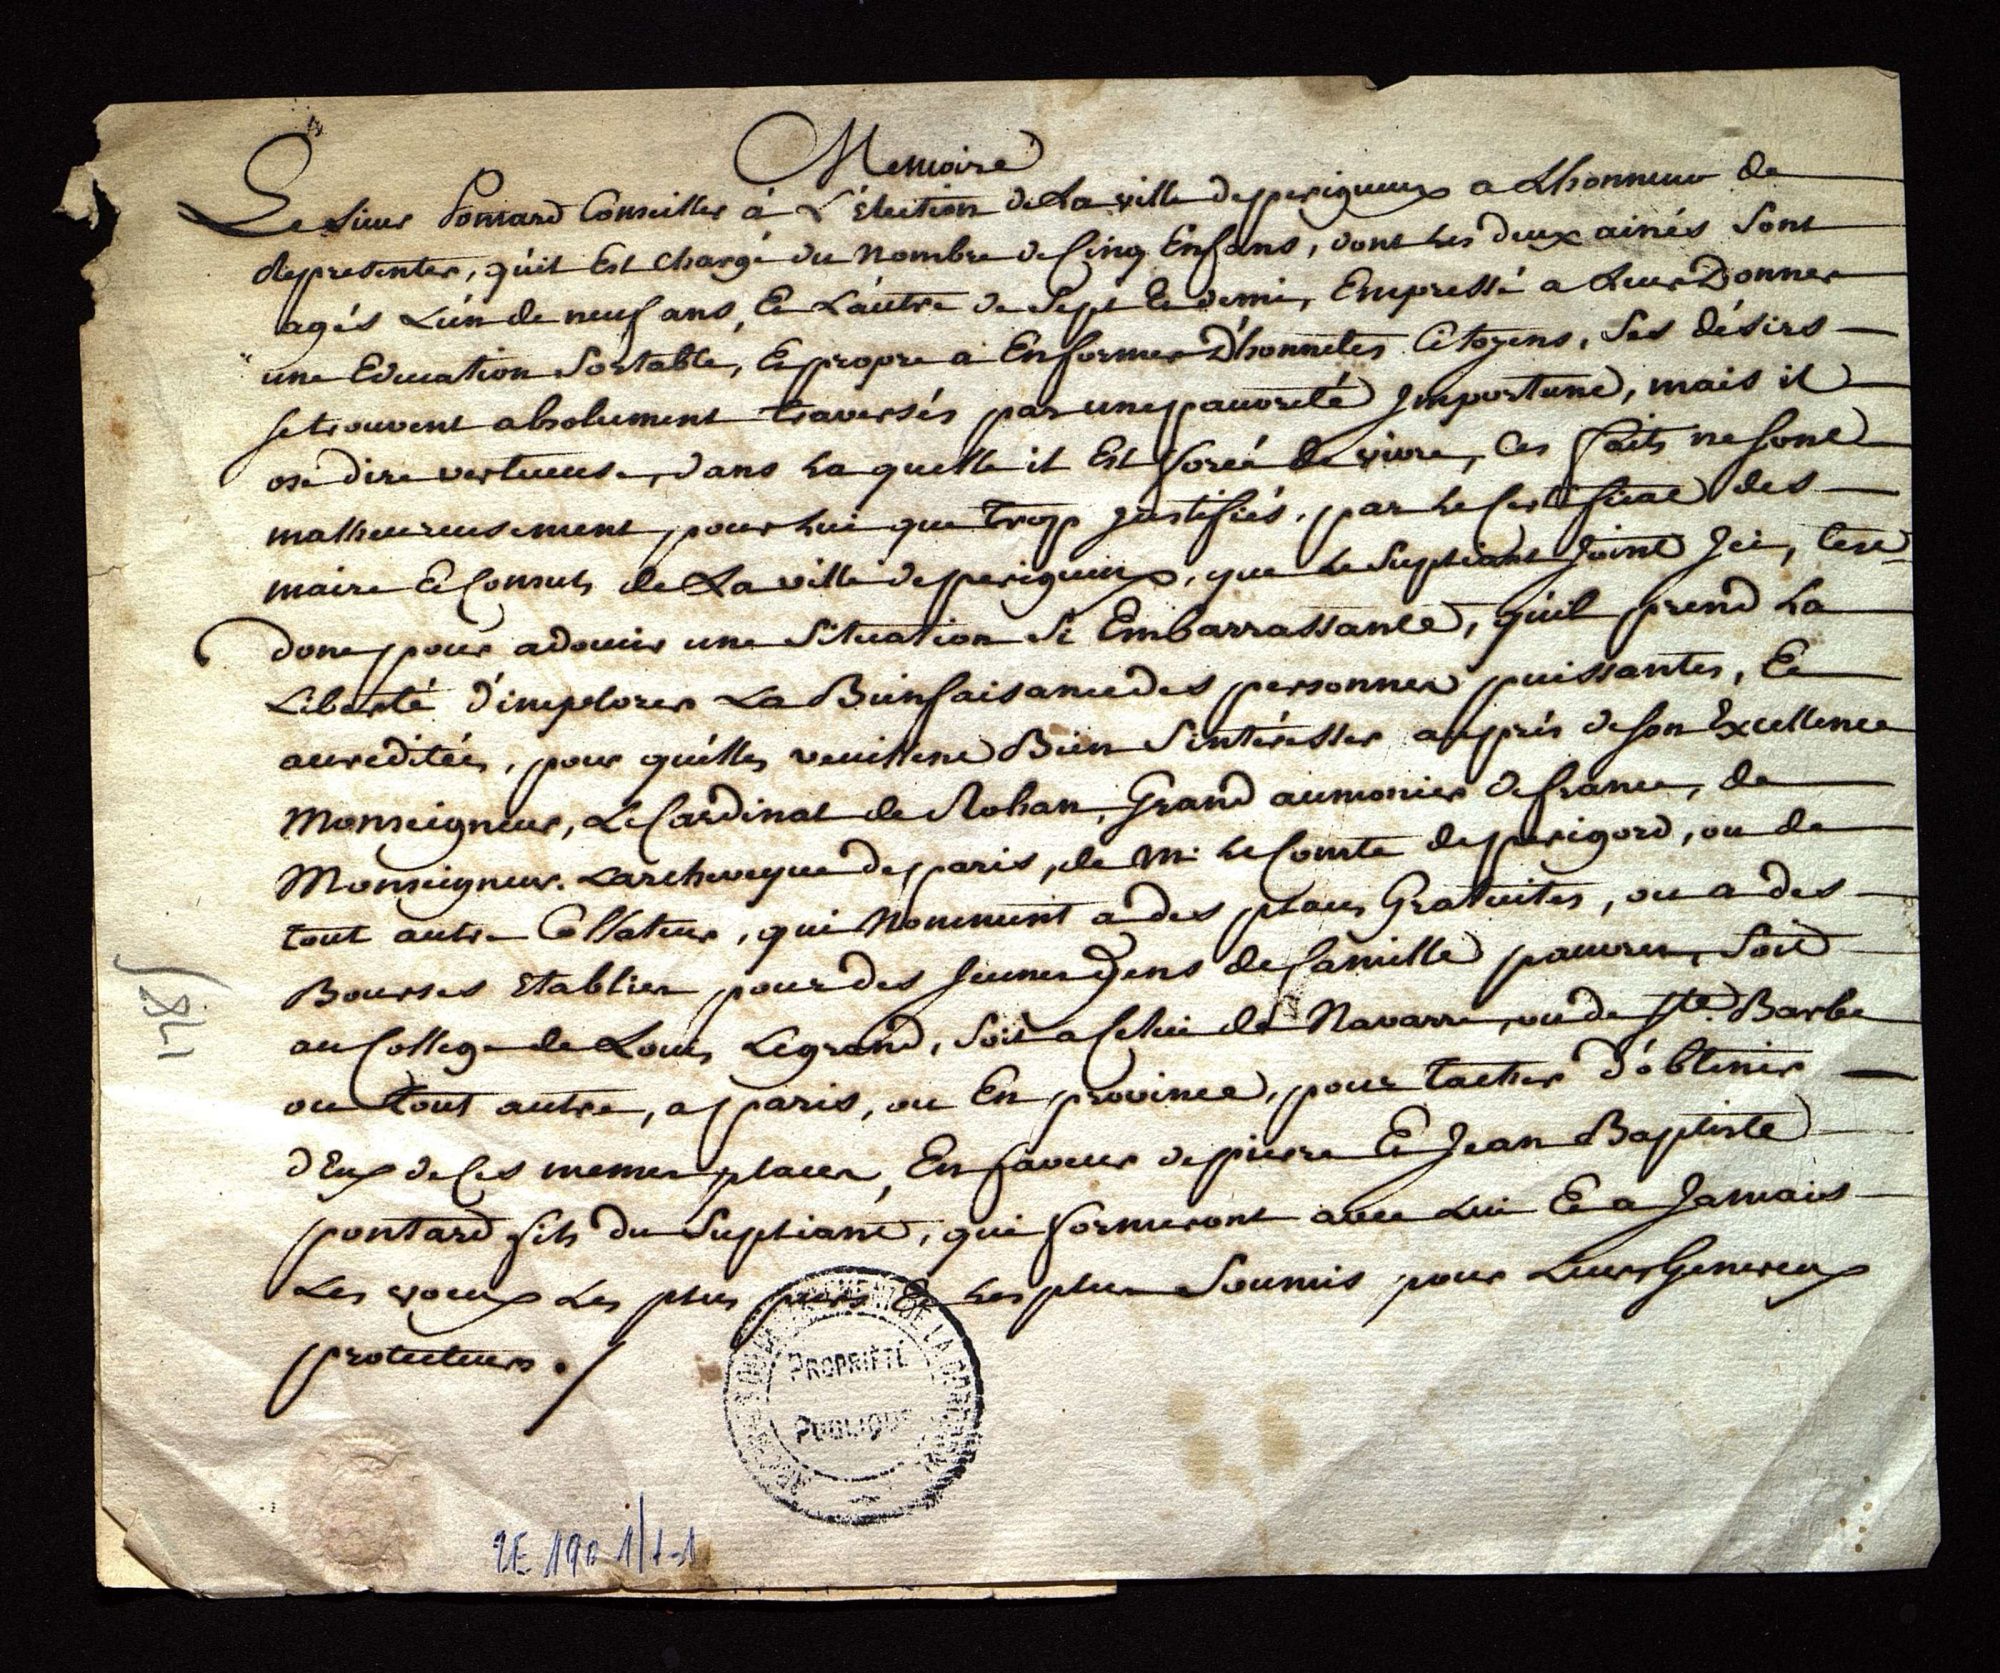 Memoire
Le Sieur Pontard Conseiller à L'élection de La ville de perigueux a Lhonneur de
representer, qu'il Est chargé du nombre de Cinq Enfans, dont les deux ainés Sont
agés L'ún de neuf ans, Et L'autre de Sept Et demi, Empressé a Leur Donner
une Education Sortable, Et propre a En former D'honnêtes Citoyens, Ses désirs
se trouvent absolument traversés par une pauvreté Importune, mais il
ose dire vertueuse, dans la quelle il Est forcé de vivre, Ces faits ne sont
malheureusement pour lui que trop justifiés, par le Certificat des
maire Et Consuls de La ville de perigueux, que le Supliant Joint Ici, C'est
donc pour adoucir une Situation Si Embarrassante, qu'il prend la
Liberté d'implorer La Bienfaisance des personnes puissantes, Et
accreditées, pour qu'elles veuillent Bien S'intéresser auprès de Son Excellence
Monseigneur, Le Cardinal de Rohan, Grand aumonier de france, de
Monseigneur. L'archeveque de paris, de Mr. le Comte de perigord, ou de
tout autre Collateur, qui Nomment a des places Gratuites, ou a des
Bourses Etablies pour des Jeunes Gens de famille pauvres, Soit
au College de Louis Legrand, Soit a Celui de Navarre, ou de Ste. Barbe
ou tout autre, a paris, ou En province, pour tacher d'óbtenir
dEux de Ces memes places, En faveur de pierre Et Jean Baptiste
pontard fils du Supliant, qui formeront avec Lui Et a Jamais
Les voeux Les plus purs Et les plus Soumis pour Leurs Genereux
protecteurs./
PROPRIÉTÉ
PUBLIQUE
2E 190 1/1-1